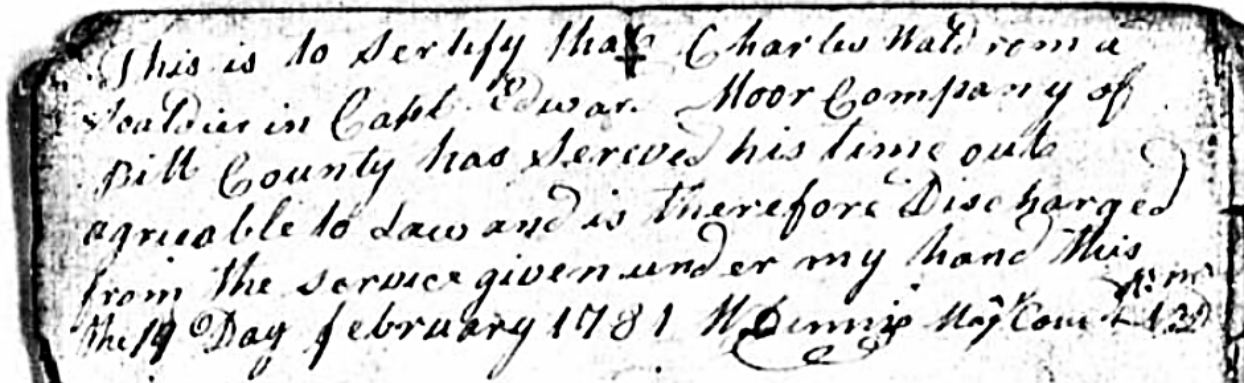 This is to Sertify that Charles Waldrom a
Souldier in Capt Edwar Moor Company of
Pitt County has Sereved his time out
agreeable to Law and is therefore Discharged
from the service given under my hand this
the 19 Day february 1781 W Dennis Maj